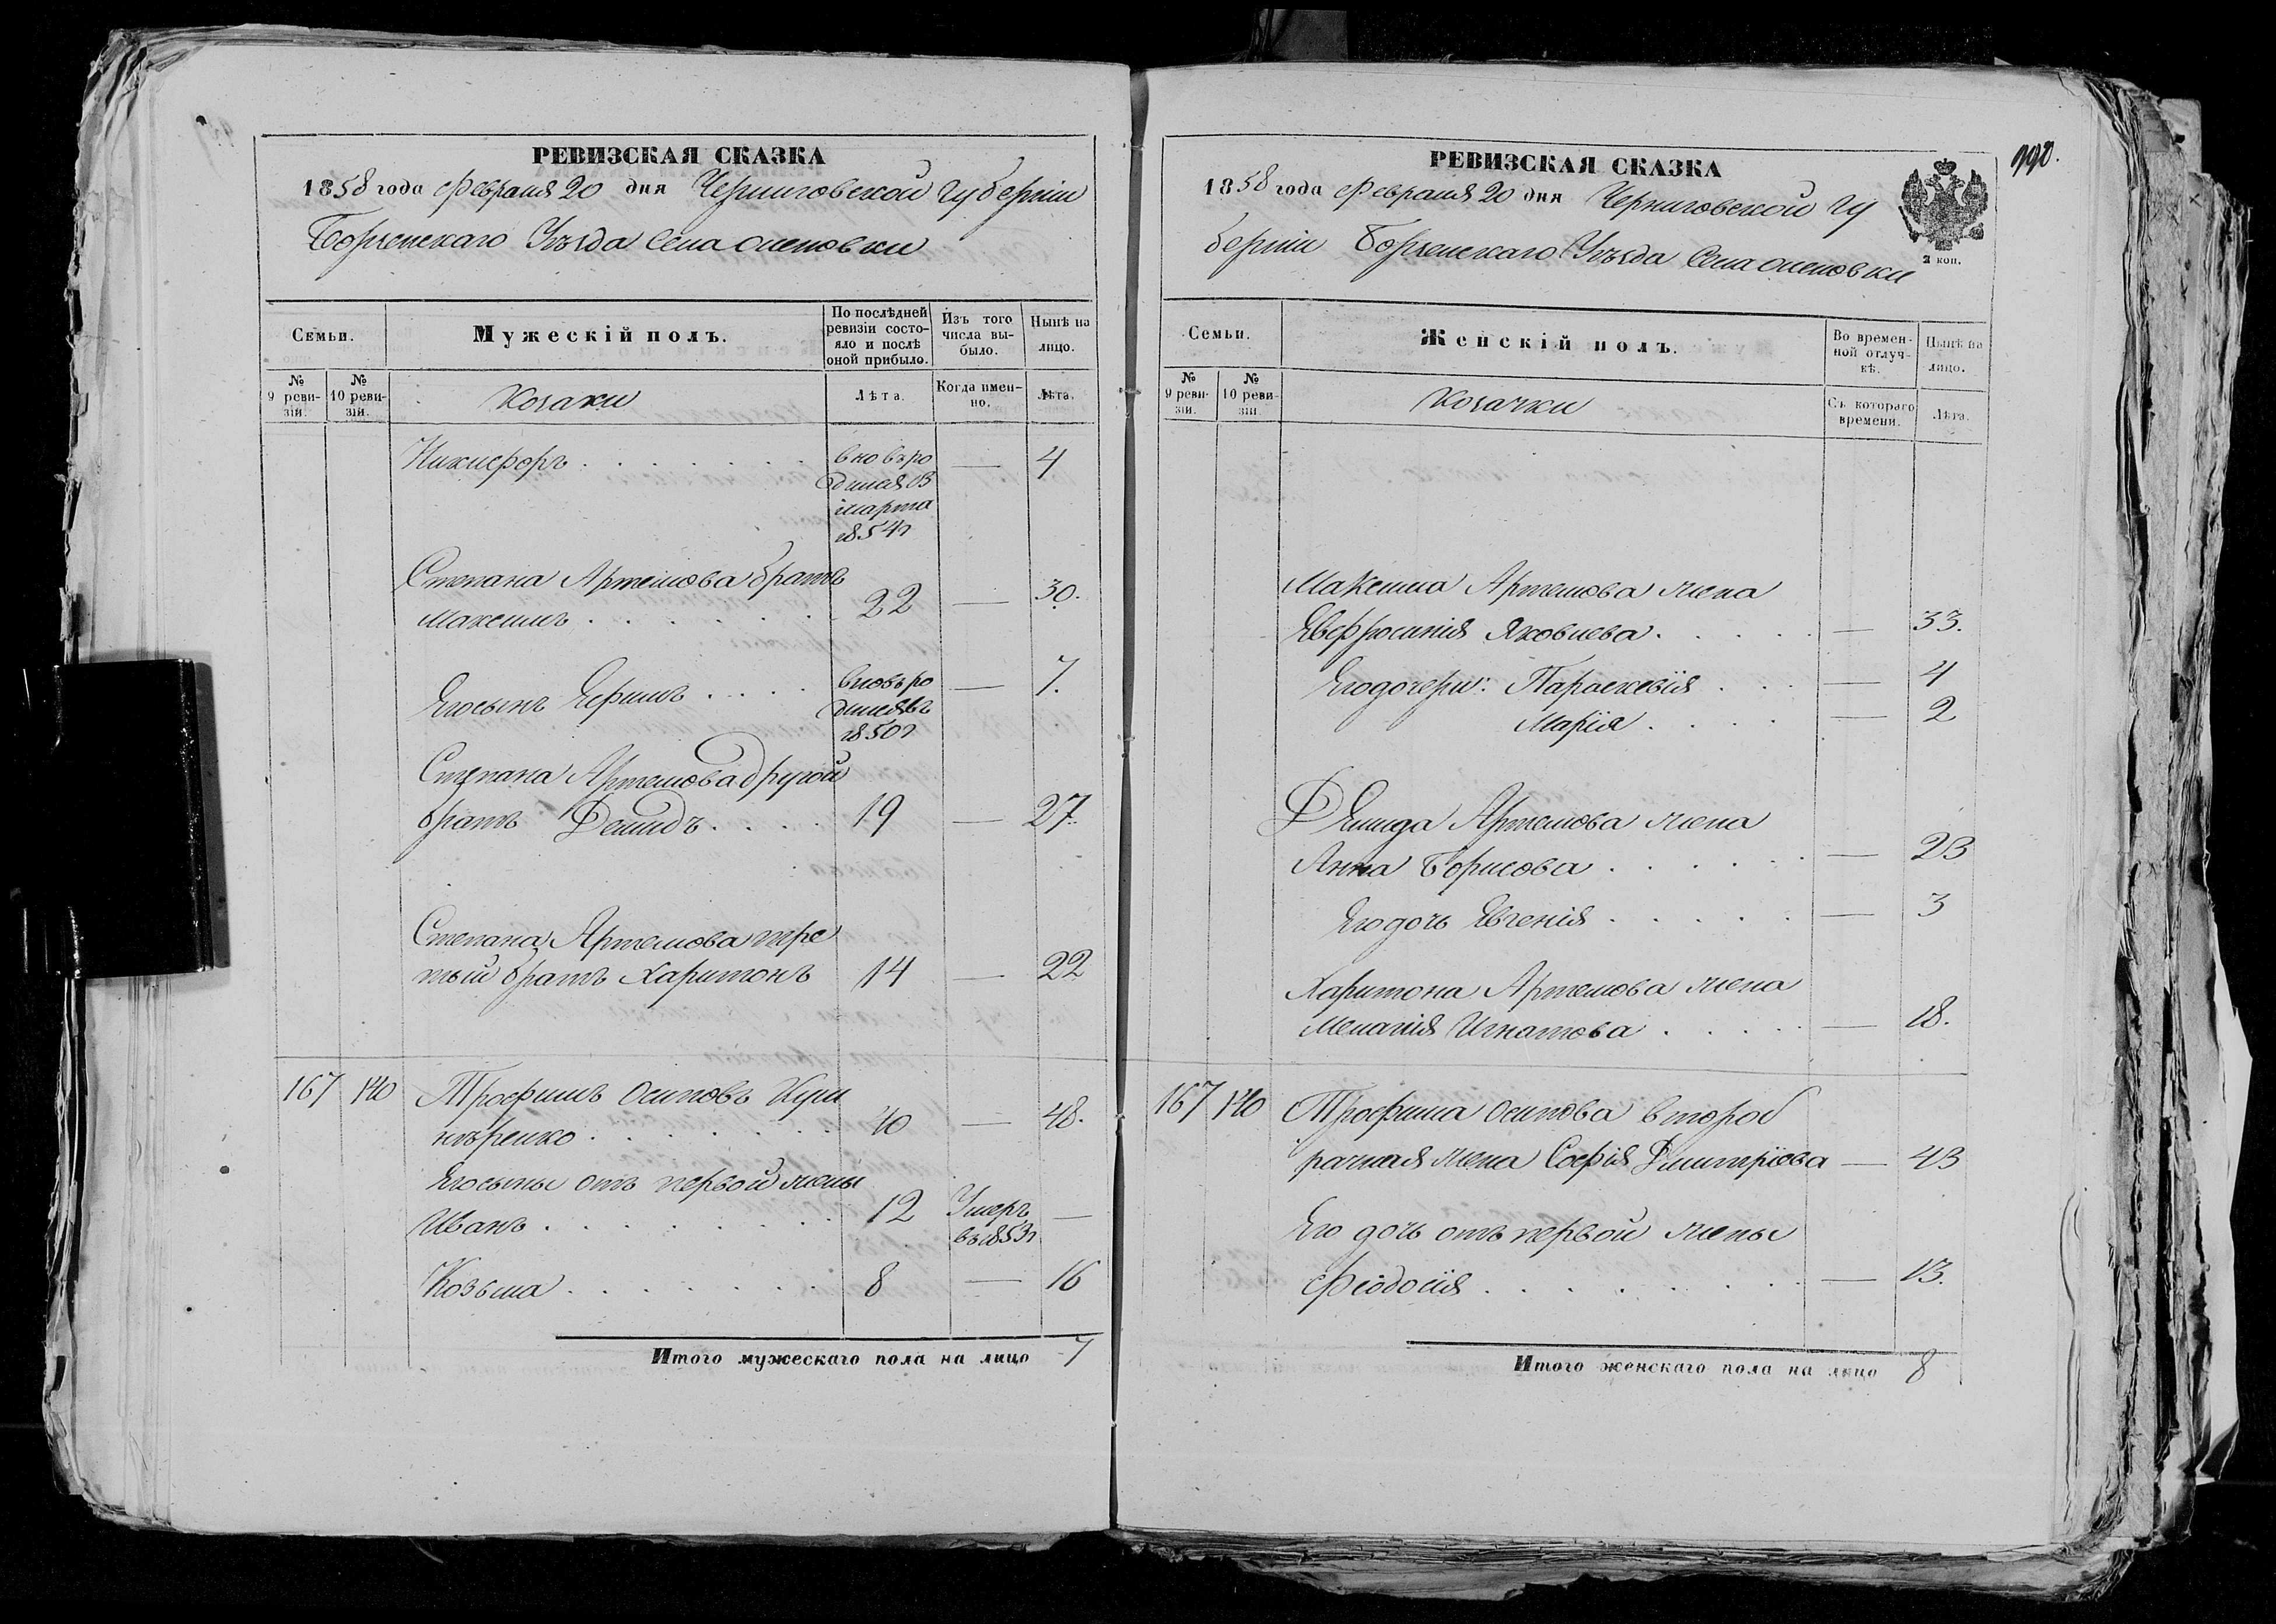 РЕВИЗСКАЯ СКАЗКА
1858 года Февраля 20 дня Черниговской губерніи
Борзенскаго Уѣзда Села Оленовки
Семьи.
Мужескій полъ.
По послѣдней ревизіи состояло и послѣ оной прибыло.
Изъ того числа выбыло.
Нынѣ на лицо.
№ 9 ревизіи.
№ 10 ревизіи.
Козаки
Лѣта.
Когда именно.
Лѣта.
Никифоръ . . . . . . . вновь ро — 4
дился В
марта
1854г
Степана Артемова братъ
Максимъ . . . . . . 22 — 30.
Его сынъ Ефимъ . . . . вновь ро — 7.
дился въ
1850г
Степана Артемова другой
братъ Демидъ . . . . 19 — 27.
Степана Артемова тре
тый братъ Харитонъ 14 — 22
167 140 Трофимъ Осиповъ Куш
нѣренко . . . . . . . 40 — 48.
Его сыны отъ первой жены
Иванъ . . . . . . . . 12 Умеръ —
въ 1853г
Козьма . . . . . . . 8 — 16
Итого мужескаго пола на лицо 7
РЕВИЗСКАЯ СКАЗКА
1858 года Февраля 20 дня Черниговской гу
берніи Борзенскаго Уѣзда Села Оленовки
2 коп.
Семьи.
Женскій полъ.
Во временной отлучкѣ.
Нынѣ на лицо.
№ 9 ревизіи.
№ 10 ревизіи.
Козачки
Съ котораго времени.
Лѣта.
Максима Артемова жена
Евфросинія Яковлева . . . . . — 33.
Его дочери: Параскевія . . . — 4
Марія . . . . — 2
Демида Артемова жена
Анна Борисова . . . . . . — 23
Его дочь Евгенія . . . . . — 3
Харитона Артемова жена
Меланія Игнатова . . . . . — 18.
167 140 Трофима Осипова второб
рачная жена Софія Дмитріева — 43
Его дочь отъ первой жены
Феодосія . . . . . . . . — 13.
Итого женскаго пола на лицо 8